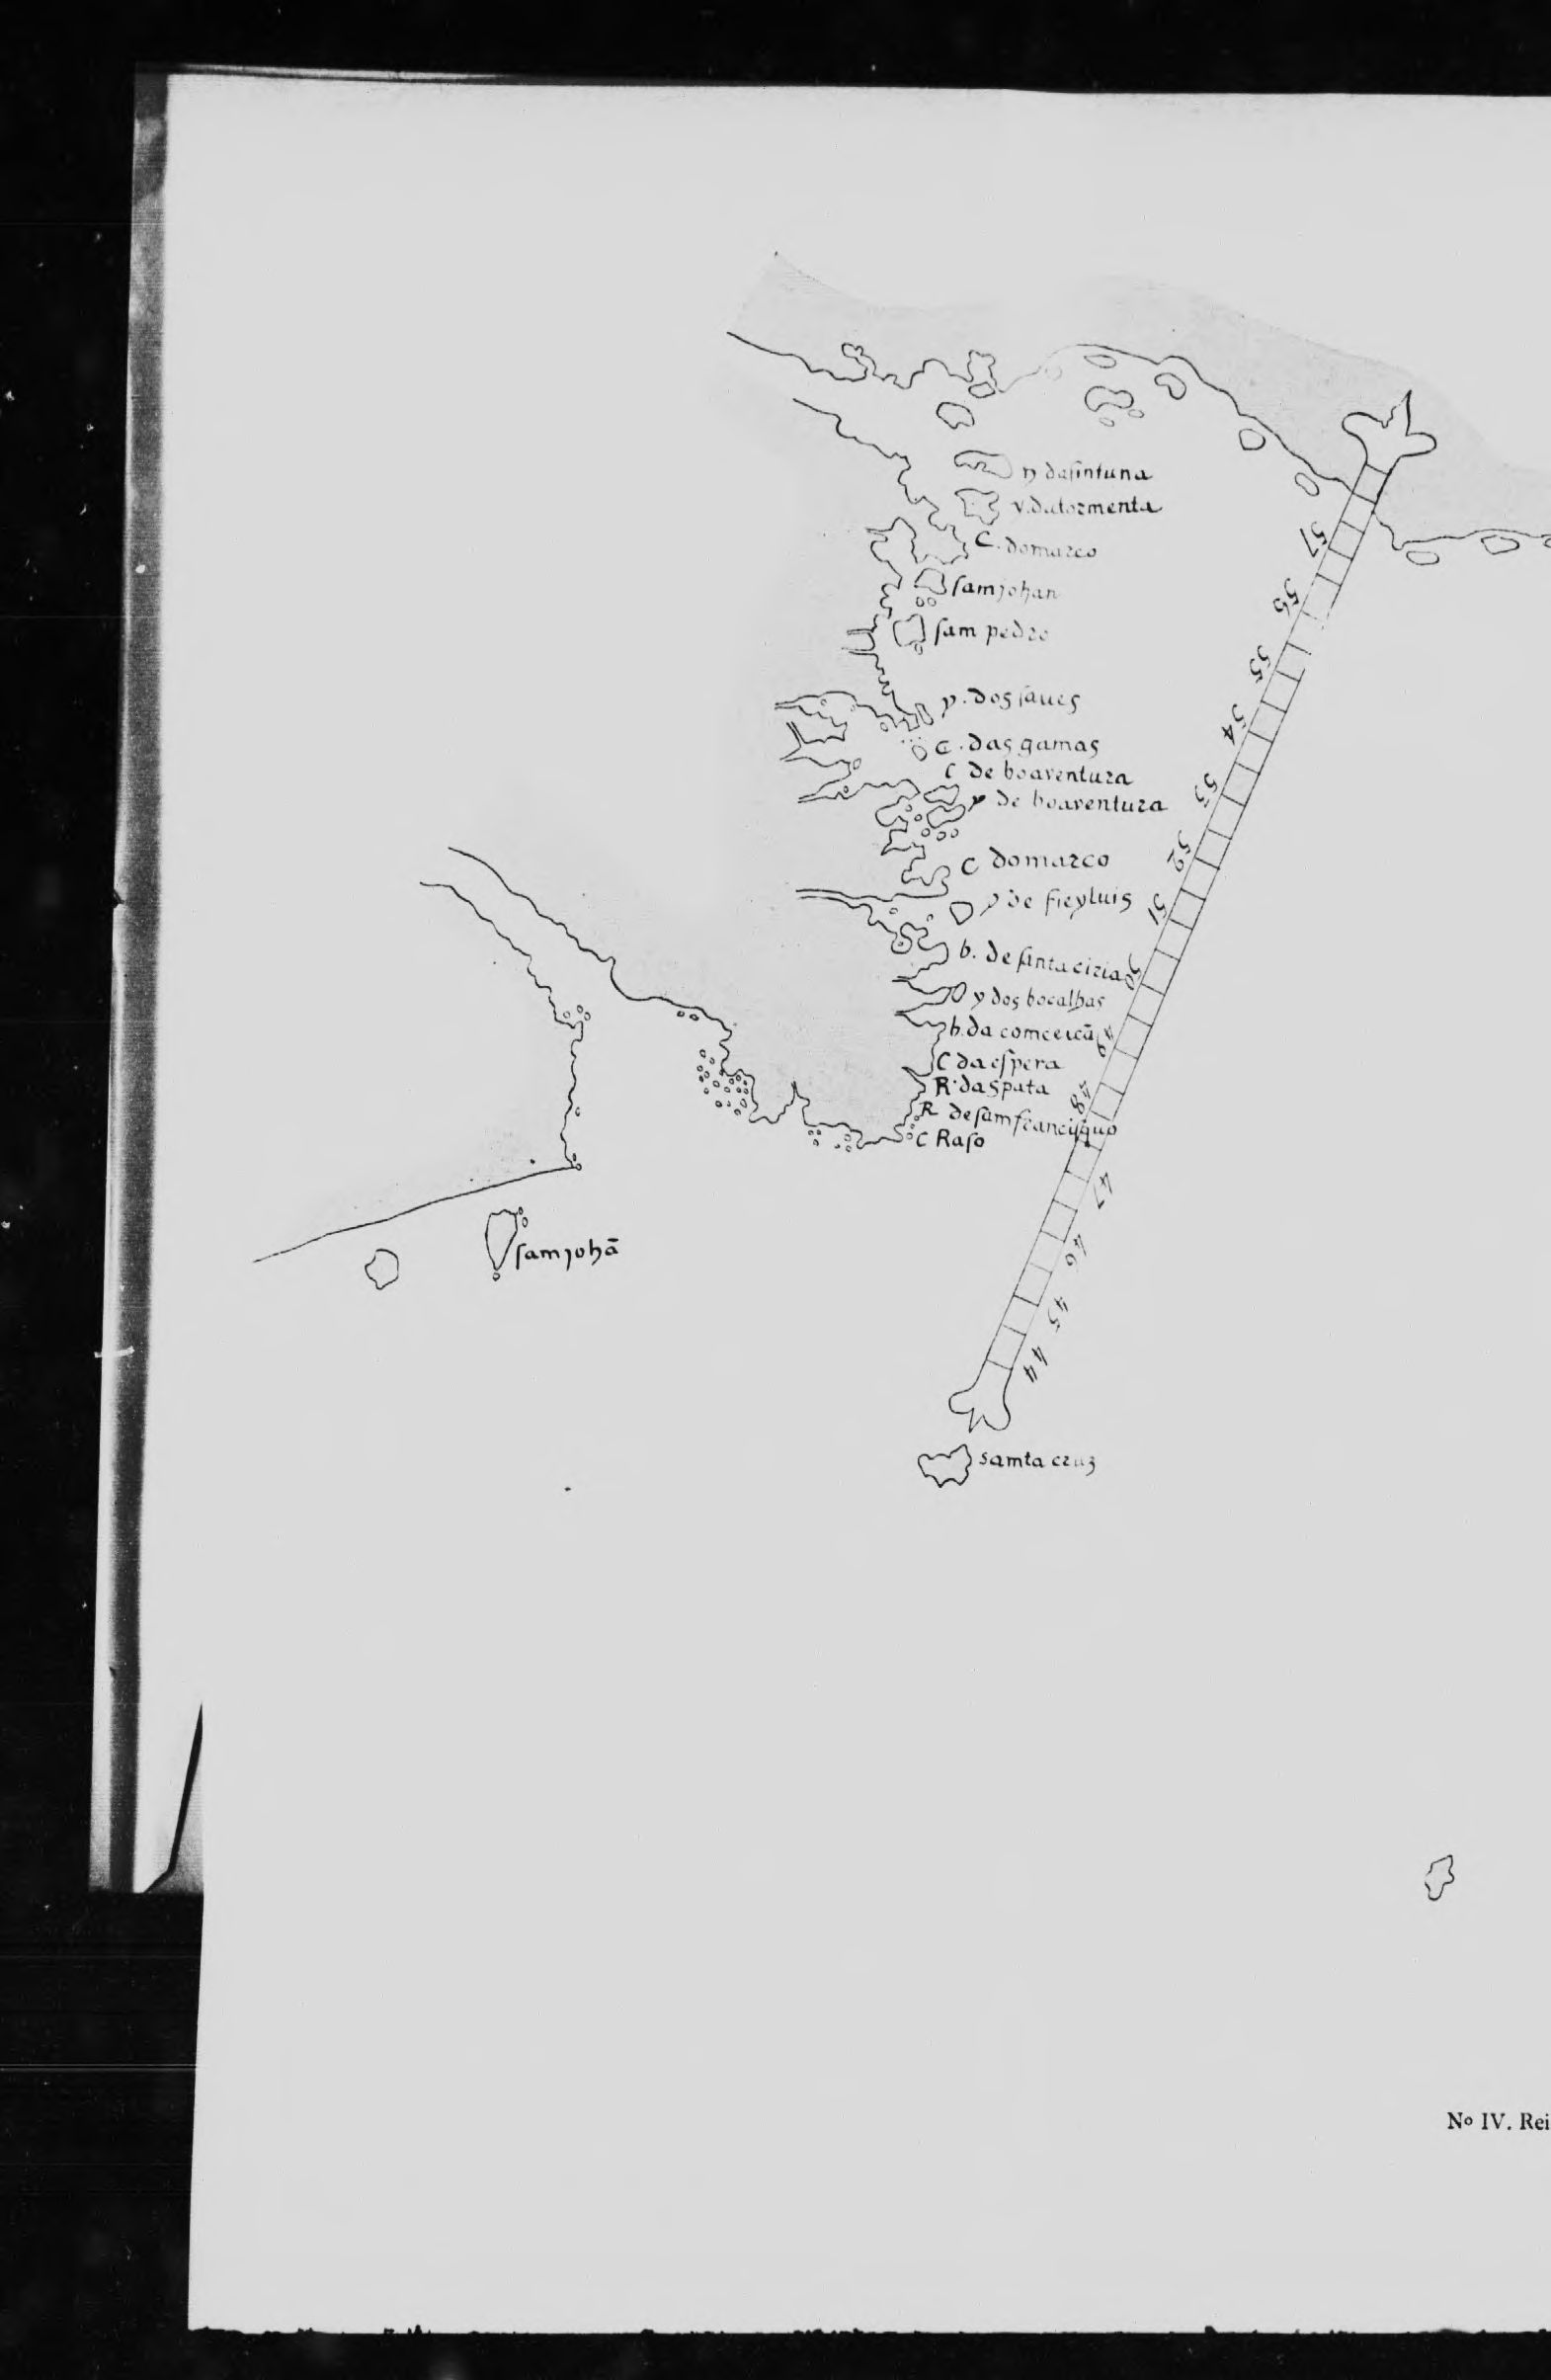 y da fortuna
y. da tormenta
C. do marco
sam johan
sam pedro
y. dos saues
C. das gamas
C de boaventura
y de boaventura
C do marco
y de freyluis
b. de santa ciria
y dos bocalhas
b. da comceicã
C da espera
R. da spata
R de sam francisquo
C Raso
samjohã
samta cruz
57
56
55
54
53
52
51
50
49
48
47
46
45
44
Nº IV. Rei